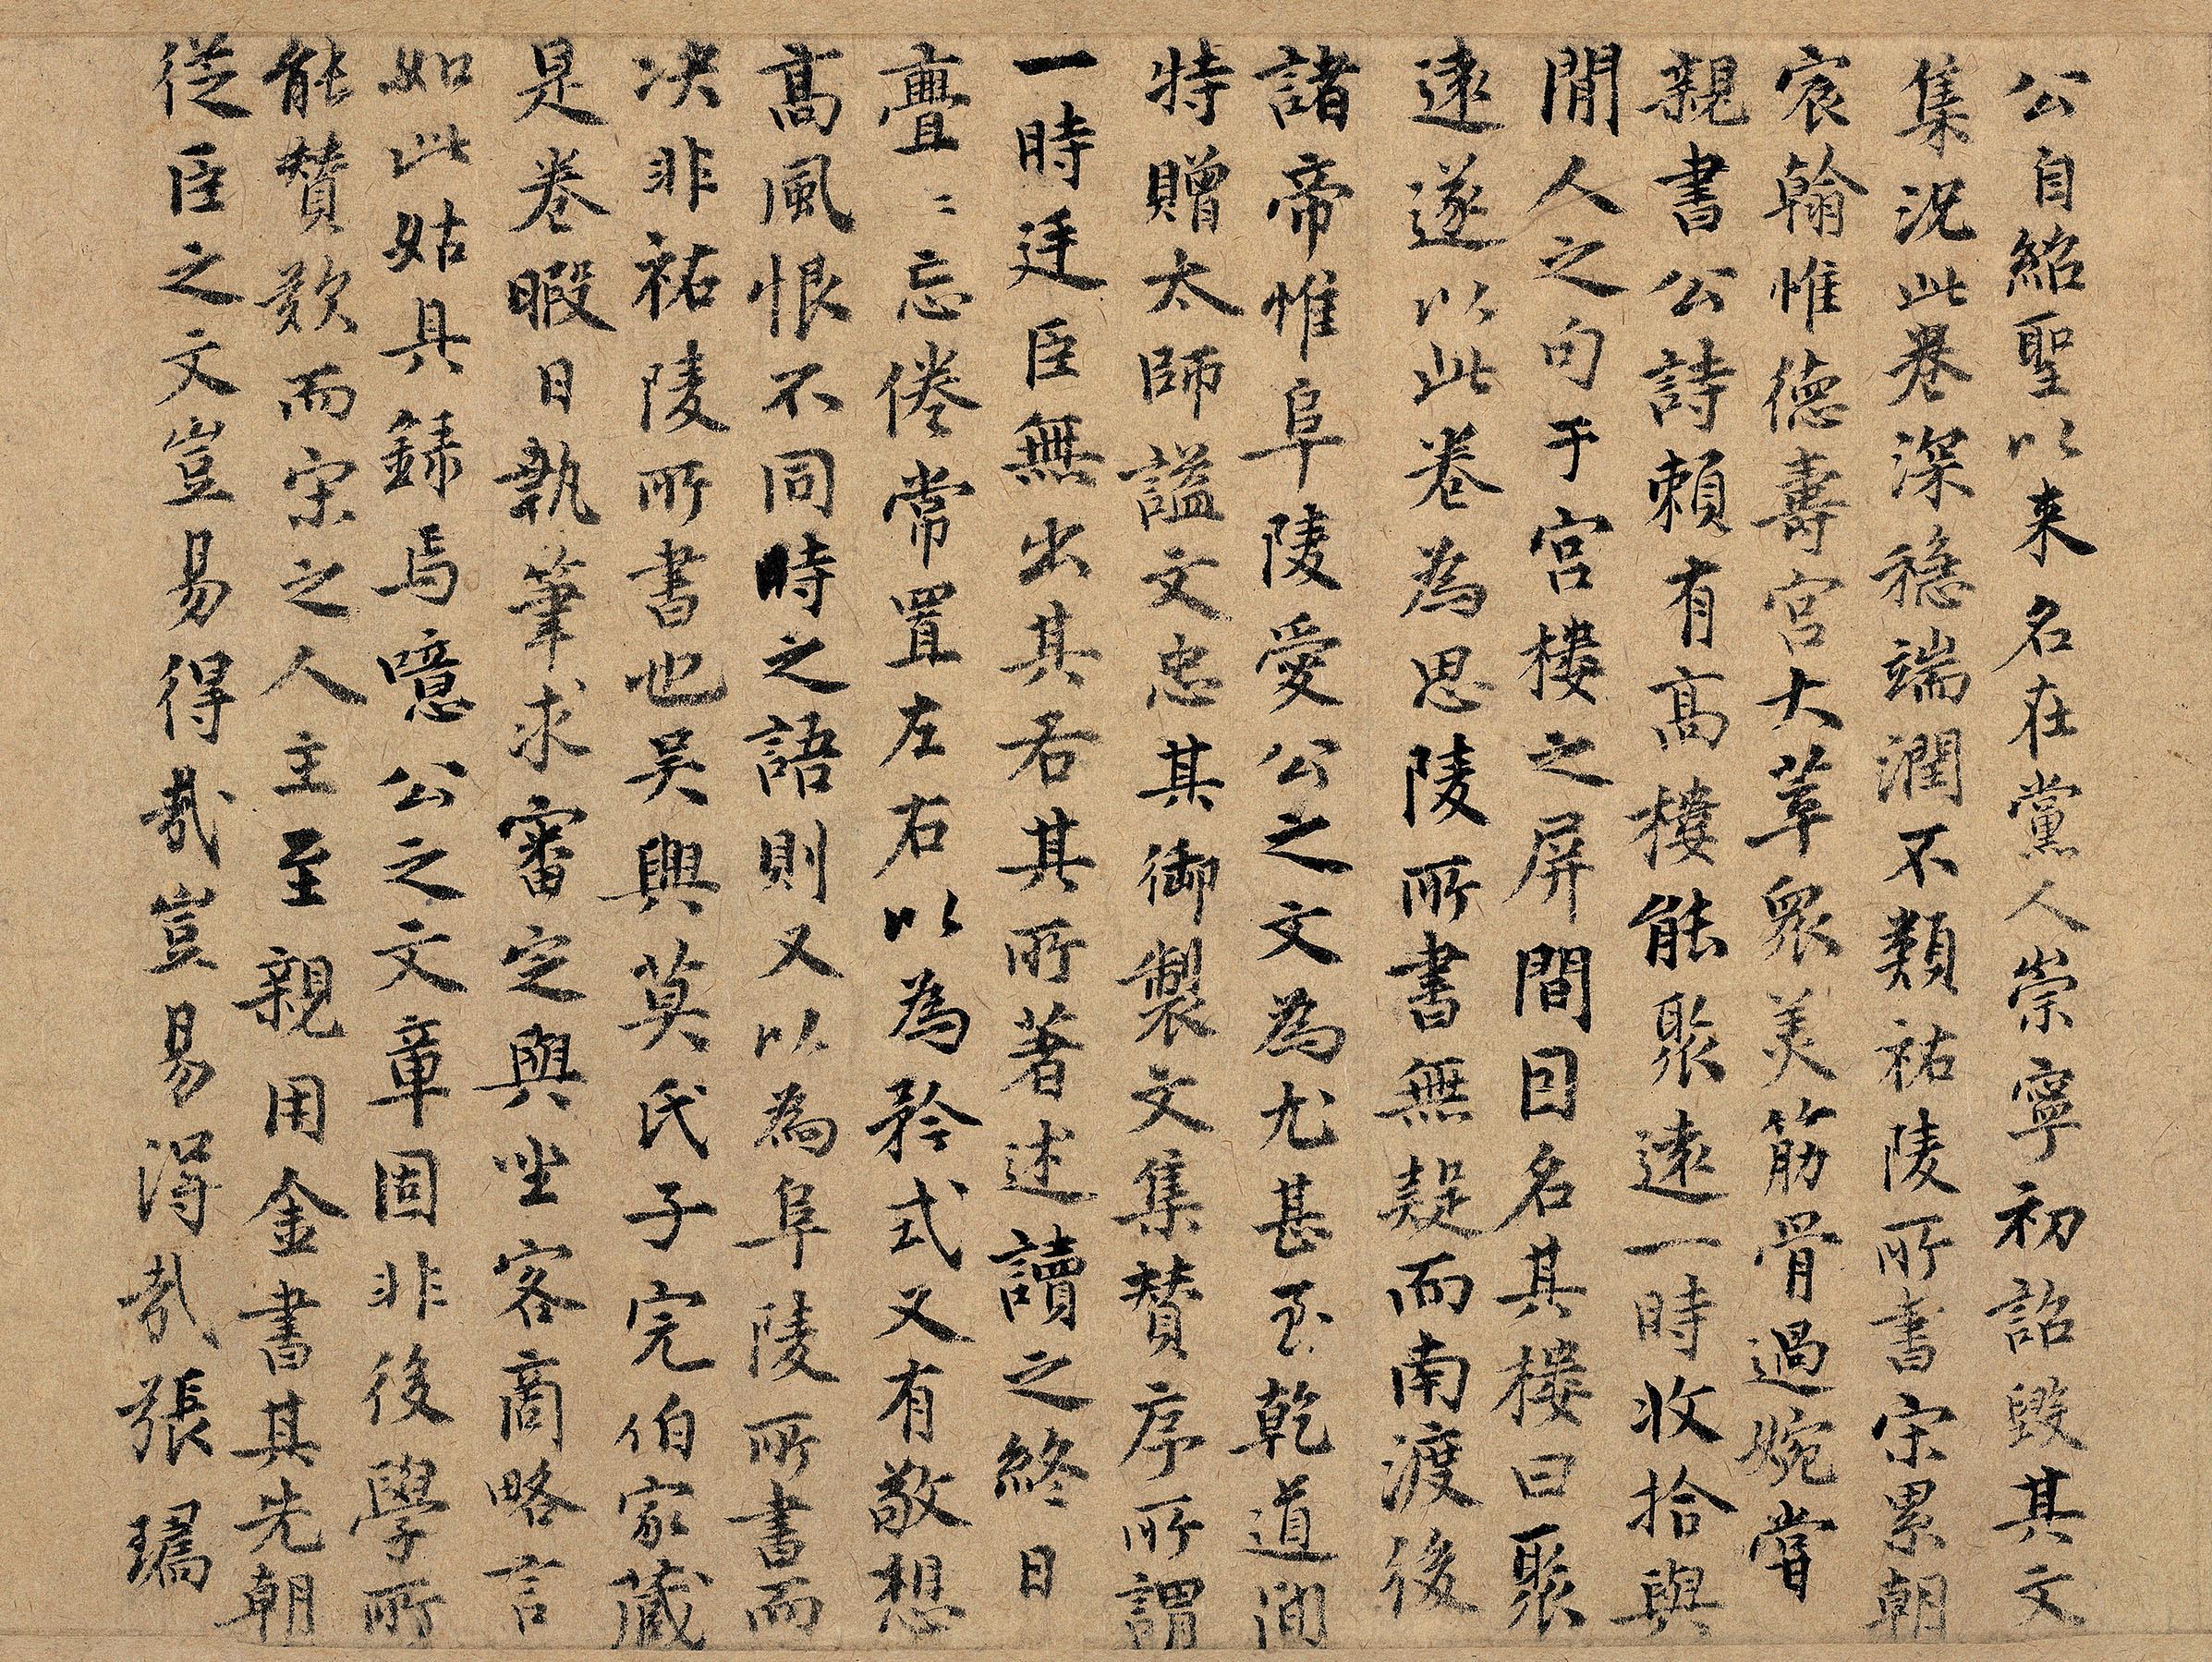 公自紹聖以来名在黨人崇寧初詔毀其文
集況此卷深穩端潤不類祐陵所書宋累朝
宸翰惟德壽宮大萃眾美筋骨過婉嘗
親書公詩頼有高樓能聚遠一時收拾與
閒人之句于宮樓之屏間因名其樓曰聚
遠遂以此卷為思陵所書無疑而南渡後
諸帝惟阜陵愛公之文為尤甚至乾道間
特贈太師謚文忠其御製文集賛序所謂
一時廷臣無出其右其所著述讀之終日
亹〻忘倦常置左右以為矜式又有敬想
髙風恨不同時之語則又以為阜陵所書而
决非祐陵所書也吴興莫氏子完伯家藏
是卷暇日執筆求審定與坐客商略言
如此姑具録焉噫公之文章固非後學所
能賛歎而宋之人主至親用金書其先朝
從臣之文豈易得哉豈易得哉張瑦